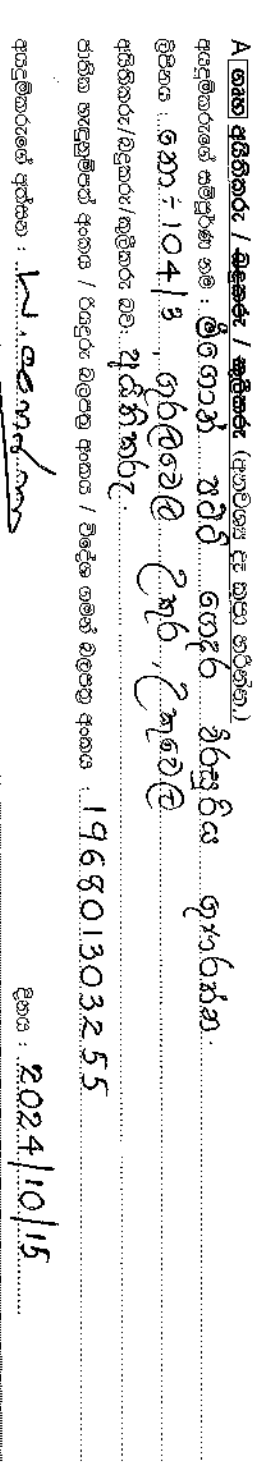 A ගෘහ අයිතිකරු / බදුකරු / කුලීකරු (අනවශ්‍ය දෑ කපා හරින්න.)
අයදුම්කරුගේ සම්පූර්ණ නම : ලීගොන් පටබැඳි ගෙදර වීරසූරිය ගුණරත්න.
ලිපිනය : නො: 104/3, ගුරුලවෙල උතුර, උකුවෙල
අයිතිකරු/බදුකරු/කුලීකරු බව : අයිතිකරු.
ජාතික හැඳුනුම්පත් අංකය / රියදුරු බලපත්‍ර අංකය / විදේශ ගමන් බලපත්‍ර අංකය : 196801303255
අයදුම්කරුගේ අත්සන : දිනය : 2024/10/15